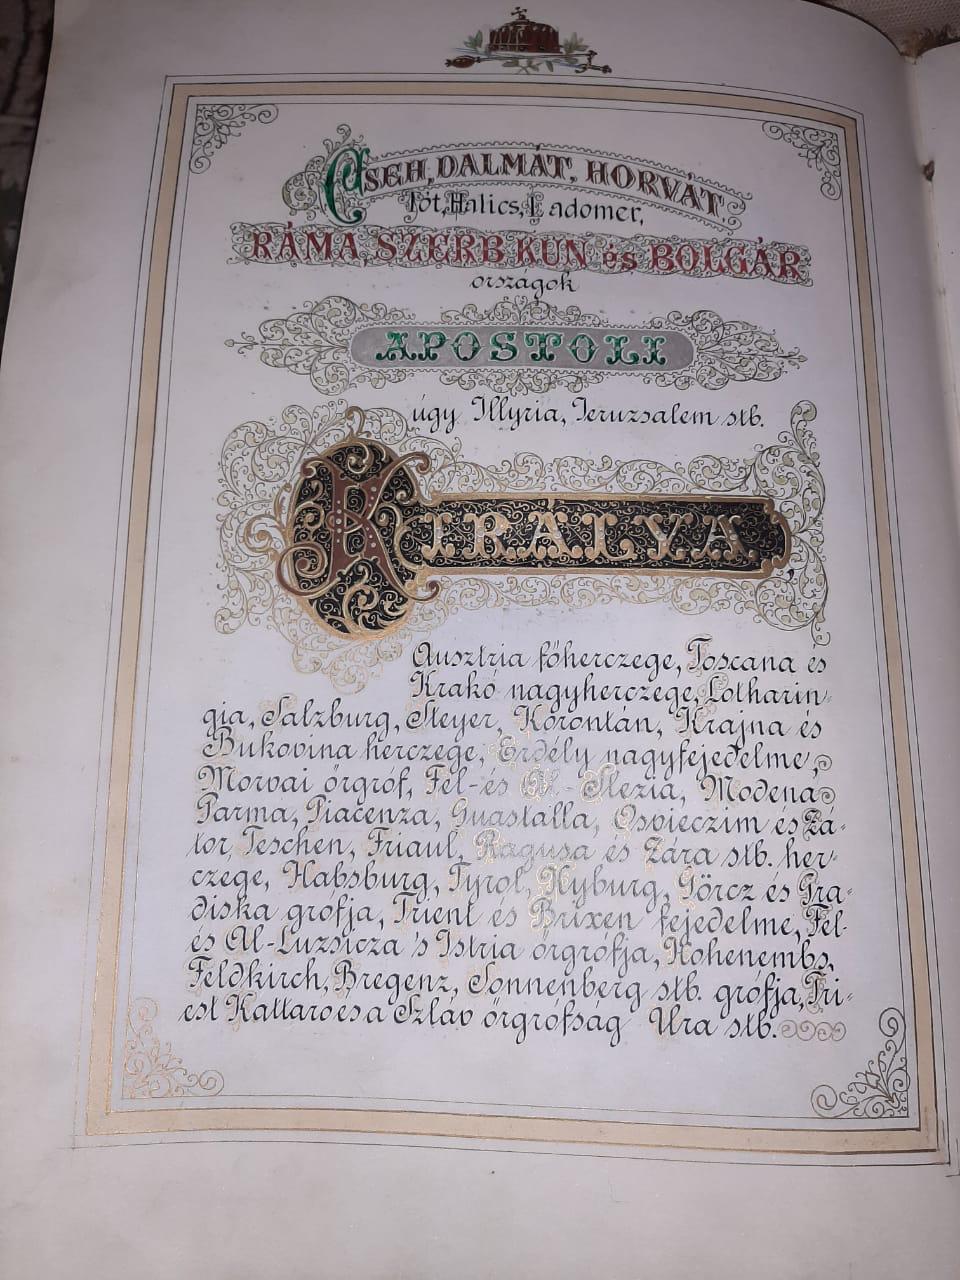 CSEH, DALMÁT, HORVÁT
Tót, Halics, Ladomer,
RÁMA, SZERB KUN és BOLGÁR
országok
APOSTOLI
úgy Illyria, Jeruzsalem stb.
KIRÁLYA
Ausztria főherczege, Toscana és
Krakó nagyherczege, Lotharin-
gia, Salzburg, Steyer, Korontán, Krajna és
Bukovina herczege, Erdély nagyfejedelme,
Morvai őrgróf, Fel- és Al- Slezia, Modena
Parma, Piacenza, Guastalla, Osvieczim és Zá-
tor, Teschen, Friaul, Ragusa és Zára stb. her-
czege, Habsburg, Tyrol, Kyburg, Görcz és Gra-
diska grófja, Trient és Brixen fejedelme, Fel-
és Al-Luzsicza 's Istria őrgrófja, Hohenembs,
Feldkirch, Bregenz, Sonnenberg stb. grófja, Tri-
est Kattaro és a Szláv őrgrófság Ura stb.